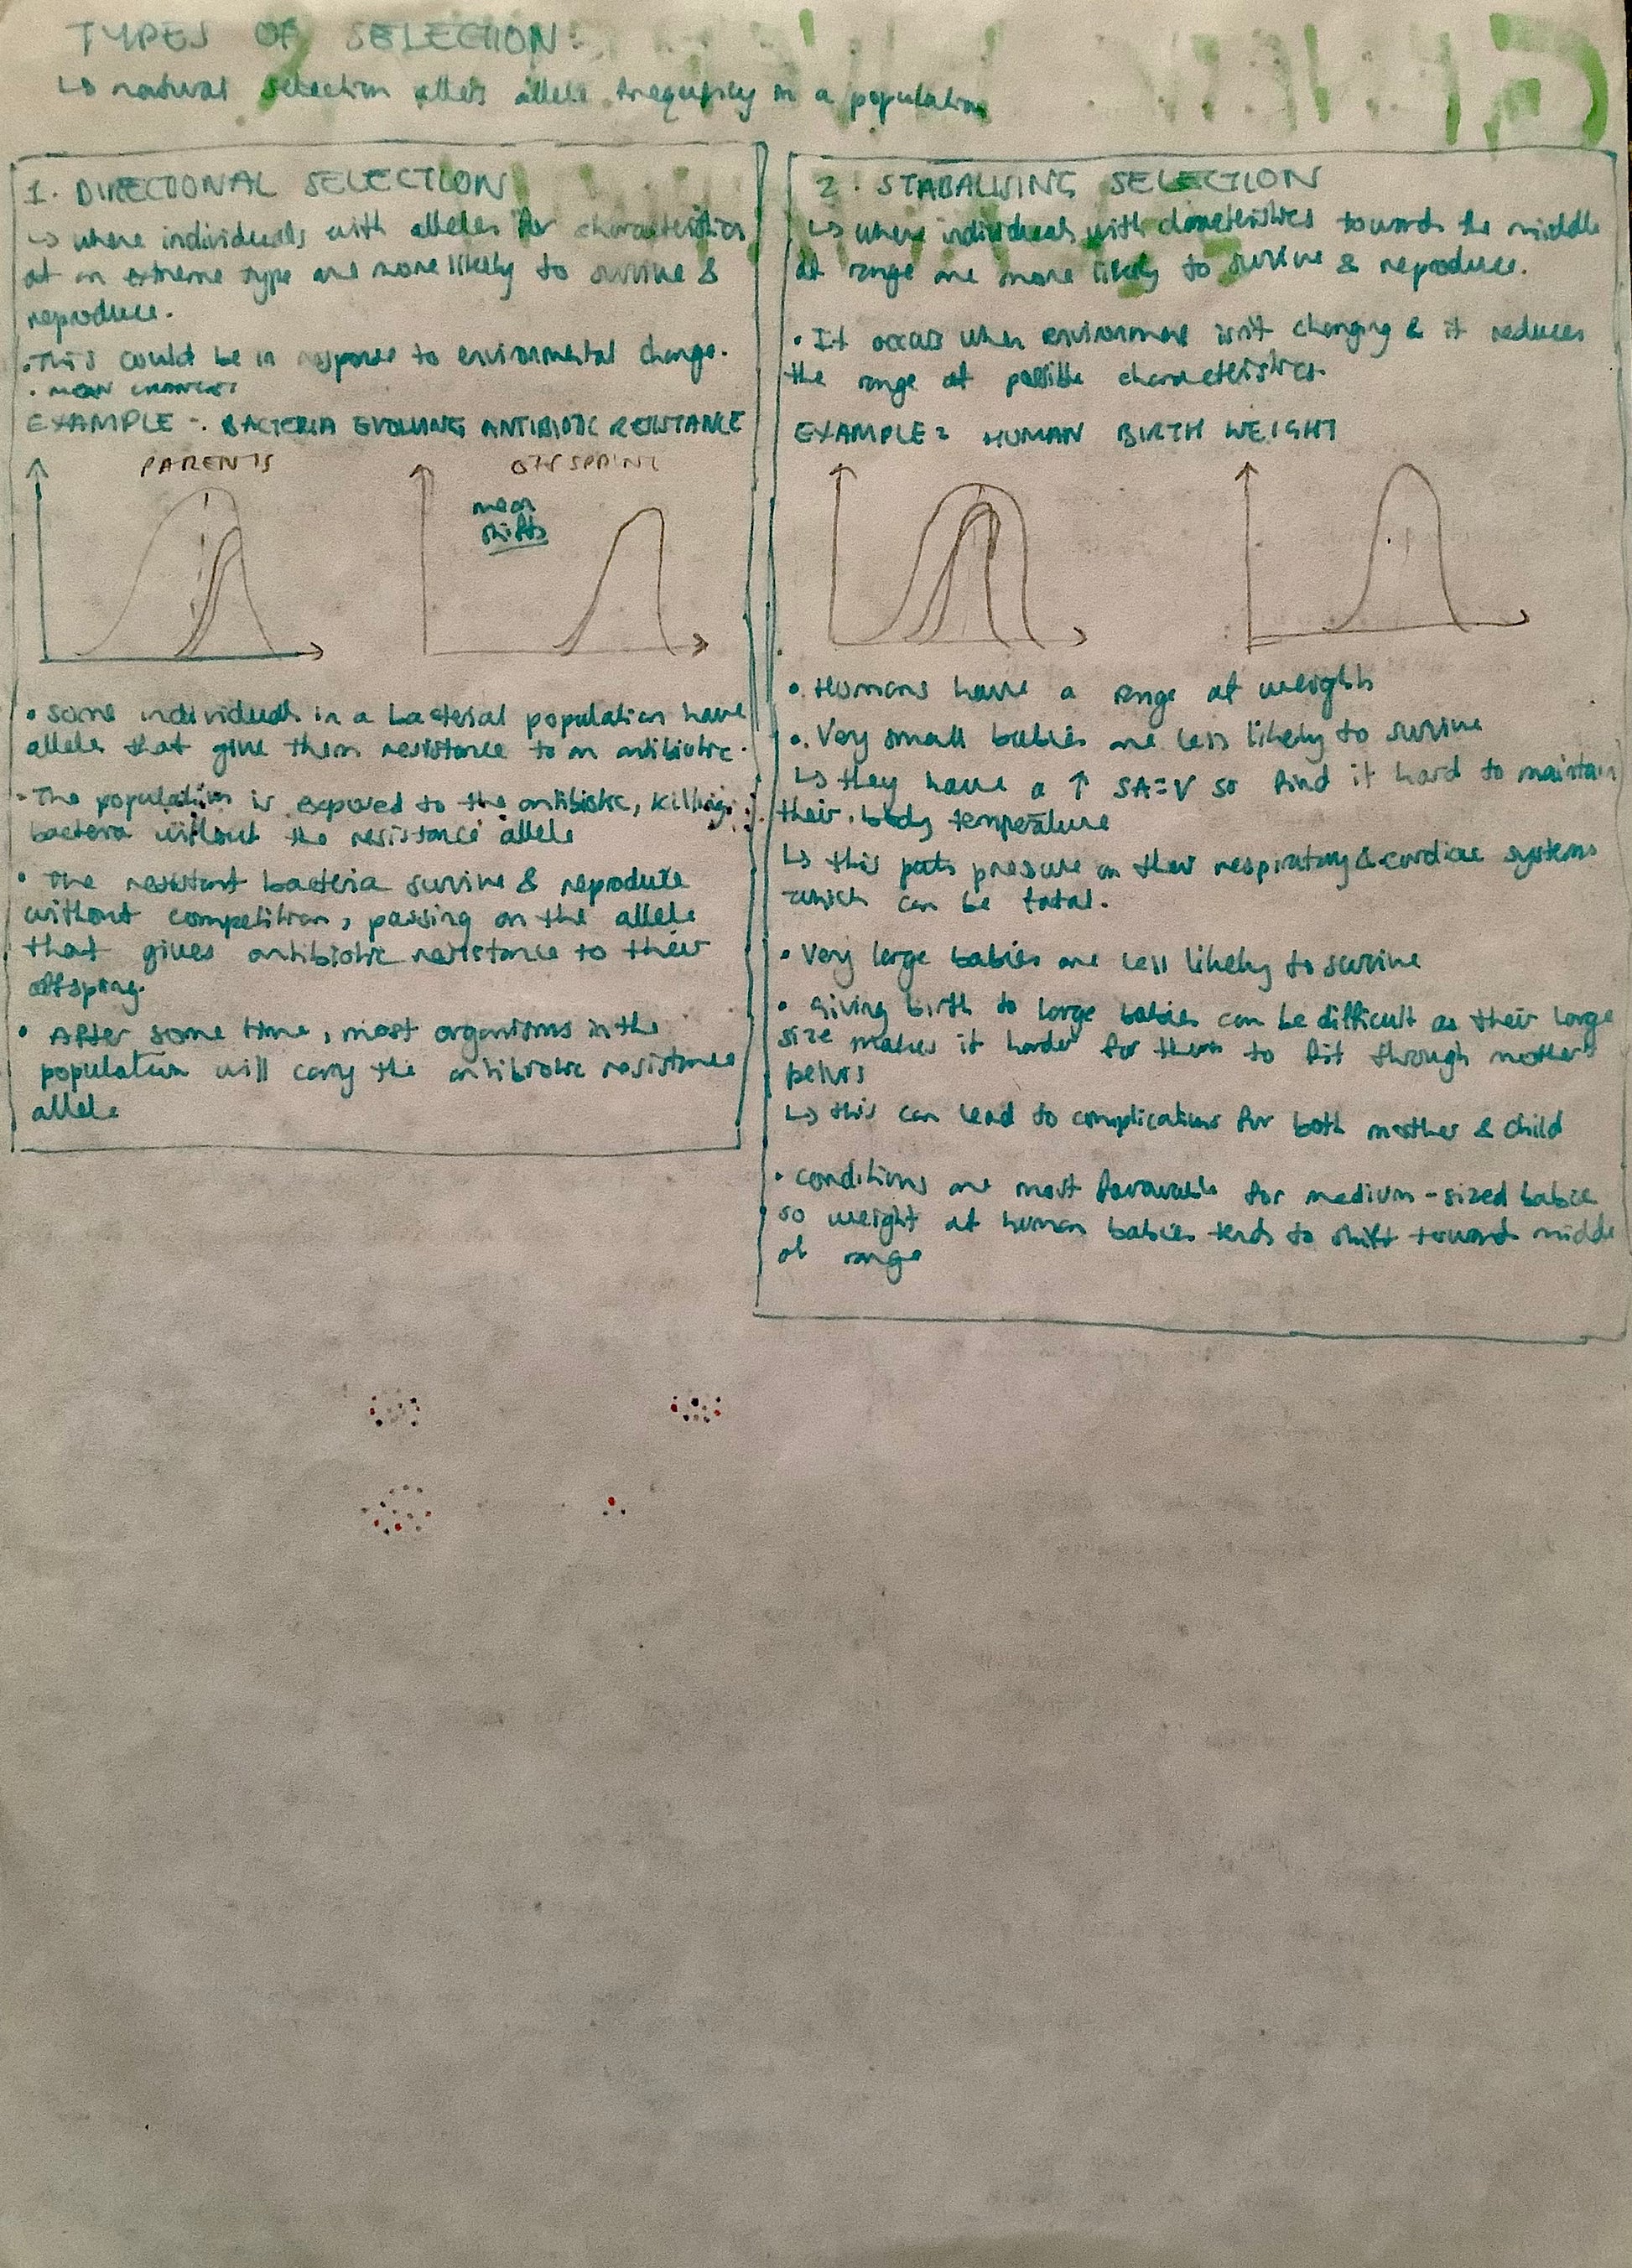 TYPES OF SELECTION:
↳ natural selection alters allele frequency in a population
1. DIRECTIONAL SELECTION
↳ where individuals with alleles for characteristics
at an extreme type are more likely to survive &
reproduce.
• This could be in response to enviornmental change.
• MEAN CHANGES
EXAMPLE -. BACTERIA EVOLVING ANTIBIOTIC RESISTANCE
PARENTS
OFFSPRING
mean
shifts
• some individuals in a bacterial population have
alleles that give them resistance to an antibiotic.
• The population is exposed to the antibiotic, killing
bacteria without the resistance allele
• The resistant bacteria survive & reproduce
without competition, passing on the allele
that gives antibiotic resistance to their
offspring.
• After some time, most organisms in the
population will carry the antibiotic resistance
allele
2. STABALISING SELECTION
↳ where individuals with characteristics towards the middle
of range are more likely to survive & reproduce.
• It occurs when environment isn't changing & it reduces
the range of possible characteristics.
EXAMPLE: HUMAN BIRTH WEIGHT
• Humans have a range of weights
• Very small babies are less likely to survive
↳ they have a ↑ SA:V so find it hard to maintain
their body temperature
↳ this puts pressure on their respiratory & cardiac systems
which can be fatal.
• Very large babies are less likely to survive
• Giving birth to large babies can be difficult as their large
size makes it harder for them to fit through mother's
pelvis
↳ this can lead to complications for both mother & child
• Conditions are most favourable for medium-sized babies
so weight of human babies tends to shift toward middle
of range